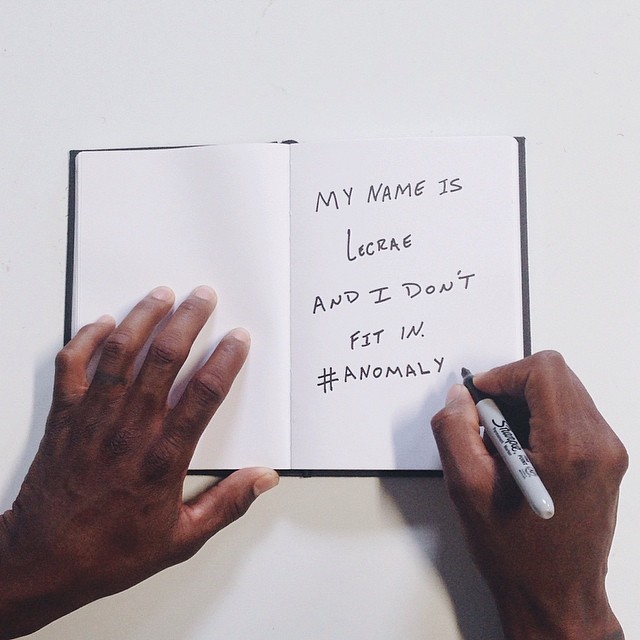 MY NAME IS
LECRAE
AND I DON'T
FIT IN.
#ANOMALY
Sharpie